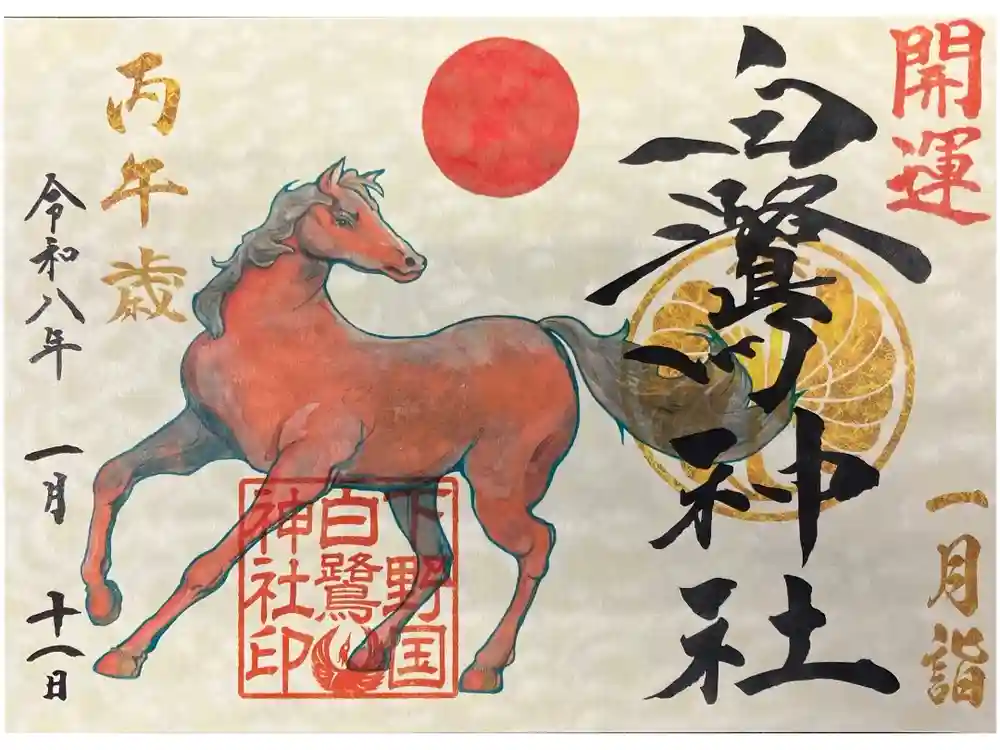 開運
白鷺神社
一月詣
下野国
白鷺
神社印
丙午歳
令和八年 一月 十一日